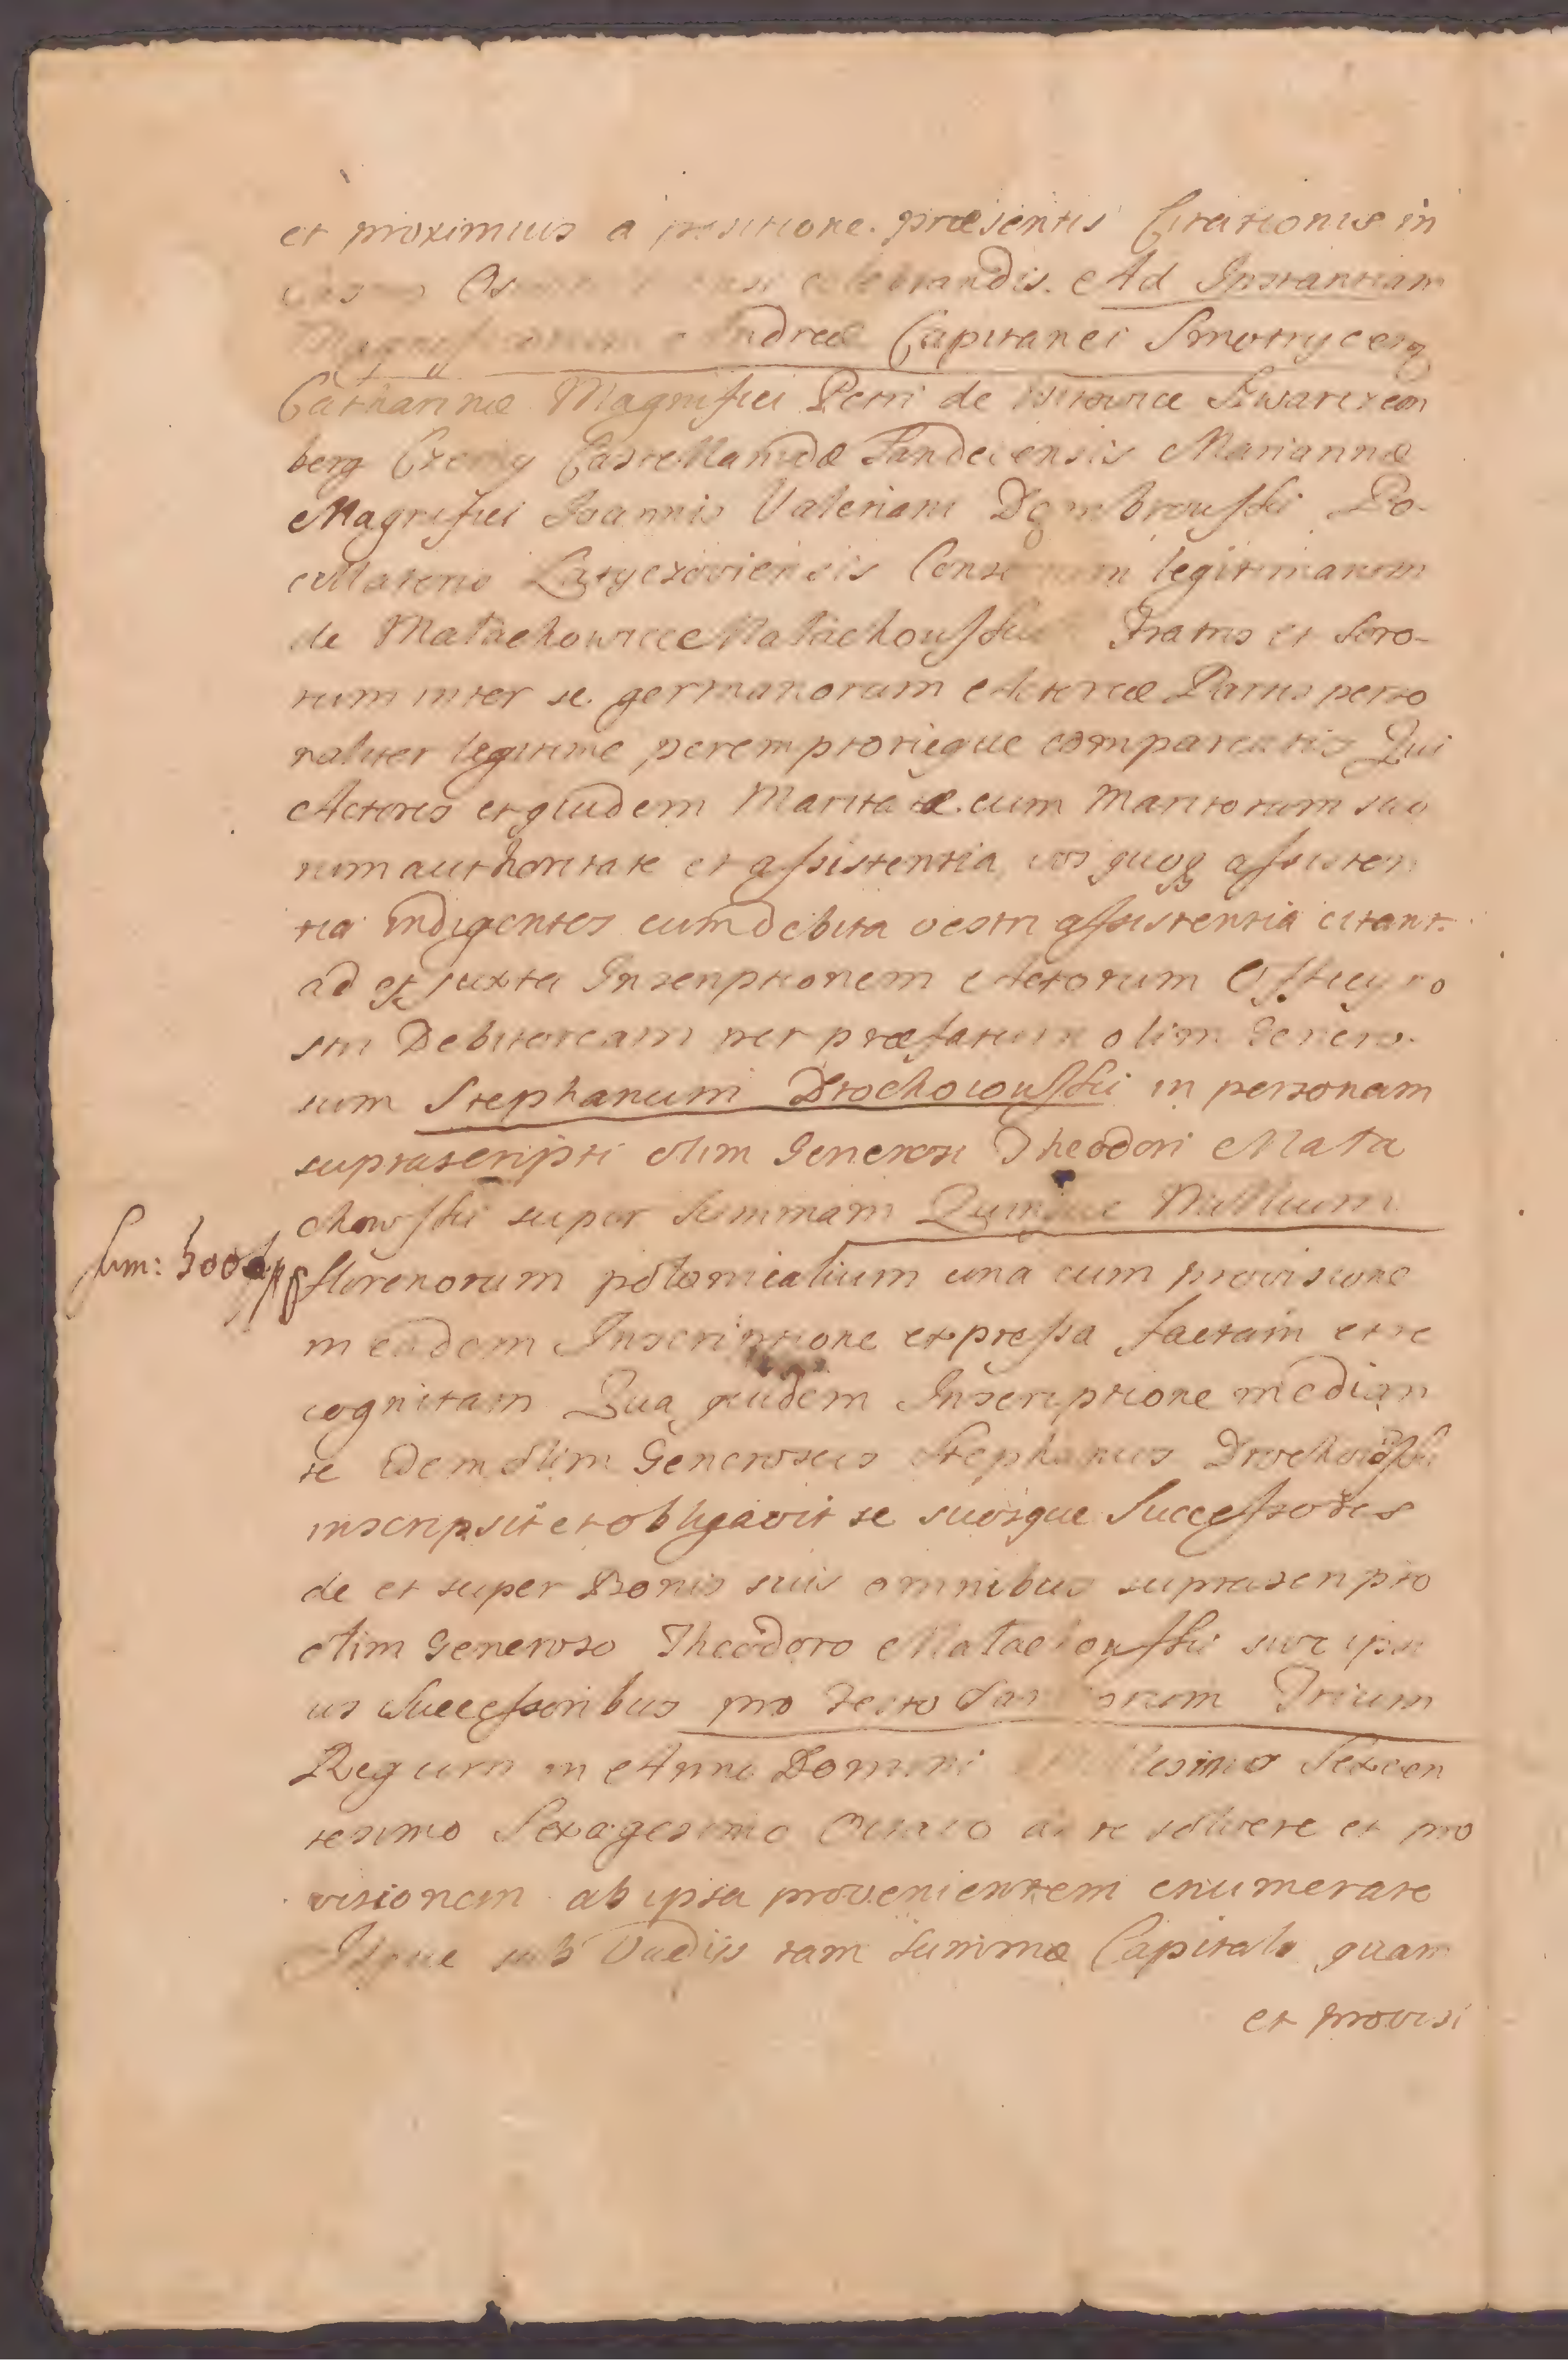 et proximius a positione præsentis Citationis in
celebrandis. Ad Instantiam
Andreæ Capitanei Smotrycen
Catharinæ Magnifici Petri de Witowice Szwarczem
berg Czerny Castellanidæ Sandecensis Mariannæ
Magnifici Joannis Valeriani Dombrowski Po-
cillatoris Latyczoviensis legitimarum
de Małachowice Małachowskie Fratris et Soro-
rum inter se germanorum Actoreæ Partis perso
naliter legitime, peremptorieque comparentis Qui
Actores et quidem Maritatæ cum Maritorum suo
rum authoritate et assistentia, vos quoq assisten
tia indigentes cum debita vestri assistentia citant.
ad et juxta Inscriptionem Actorum Officy no
stri Debitoream per præfatum olim Genero-
sum Stephanum Drochowski in personam
suprascripti olim Generosi Theodori Mała
chowski super Summam Quinque Millium
Sum: 5000
florenorum polonicalium una cum provisione
in eadem Inscriptione expressa factam et re
cognitam Qua quidem Inscriptione median
te Idem olim Generosus Stephanus Drochowski
inscripsit et obligavit se suosque Successores
de et super Bonis suis omnibus suprascripto
olim Generoso Theodoro Małachowski suisc ipsi
us Successoribus pro Festo Sanctorum Trium
Regum in Anno Domini Millesimo Sexcen
tesimo Sexagesimo Octavo dare solvere et pro
visionem ab ipsa provenientem enumerare
Idque sub Vadiis tam Summæ Capitalis quam
et provisi